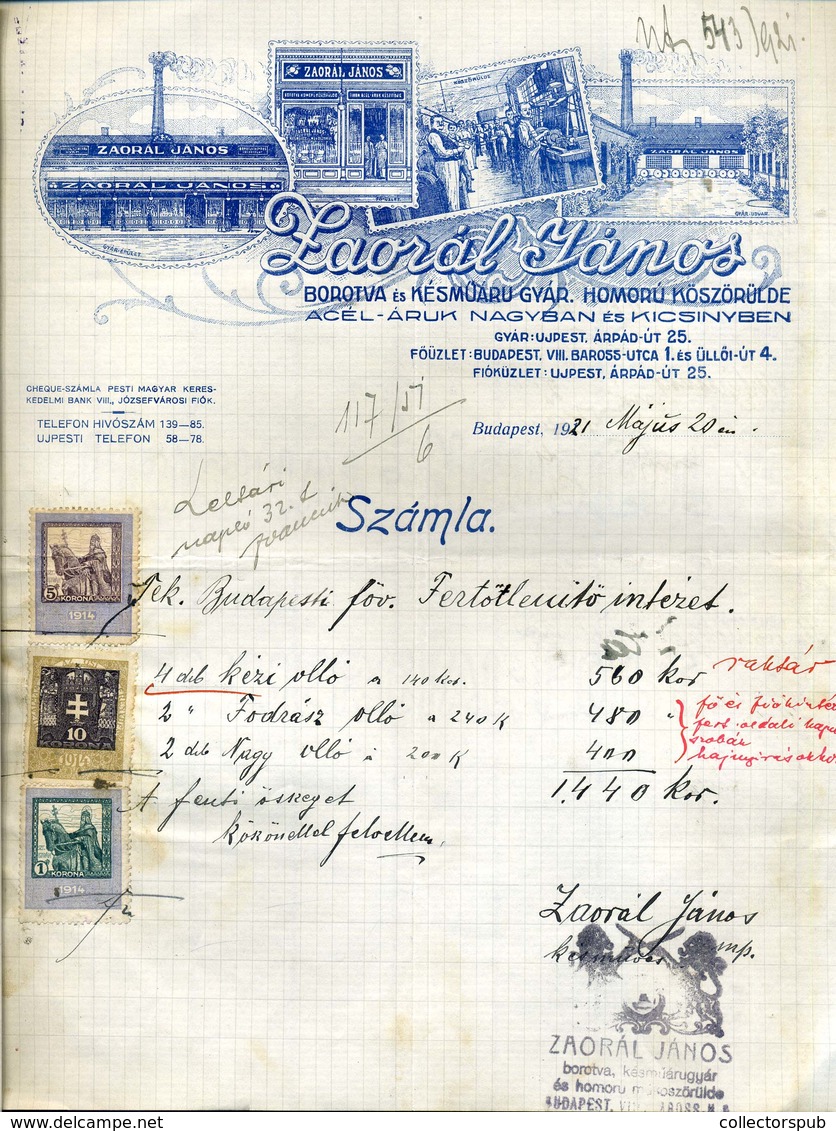 543/921.
ZAORÁL JÁNOS
KÖSZÖRÜLDE
ZAORÁL JÁNOS
ZAORÁL JÁNOS
ZAORÁL JÁNOS
GYÁR-ÉPÜLET.
FŐ-ÜZLET.
GYÁR-UDVAR.
Zaorál János
BOROTVA és KÉSMŰÁRU GYÁR. HOMORÚ KÖSZÖRÜLDE
ACÉL-ÁRUK NAGYBAN és KICSINYBEN
GYÁR: UJPEST, ÁRPÁD-ÚT 25.
FŐÜZLET: BUDAPEST, VIII. BAROSS-UTCA 1. és ÜLLŐI-ÚT 4.
FIÓKÜZLET: UJPEST, ÁRPÁD-ÚT 25.
CHEQUE-SZÁMLA PESTI MAGYAR KERES-
KEDELMI BANK VIII., JÓZSEFVÁROSI FIÓK.
TELEFON HIVÓSZÁM 139—85.
UJPESTI TELEFON 58—78.
117/51
6
Budapest, 1921 Május 20 án
Leltári
napló 32. t
Számla.
5 KORONA
1914
Tek. Budapesti föv. Fertőtlenitő intézet.
4 drb kézi olló a 140 kor. 560 kor
raktár
2 " Fodrász olló a 240 K 480 "
2 drb Nagy olló á 200 K 400
fő és fiókintéz
szobák
1.440 kor.
10
KORONA
1914
A fenti össeget
köszönettel felvettem.
1 KORONA
1914
Zaorál János
késműves mp.
ZAORÁL JÁNOS
borotva, késműárugyár
és homoru műköszörülde
BUDAPEST, VIII. BAROSS-U.
delcampe.net
collectorspub